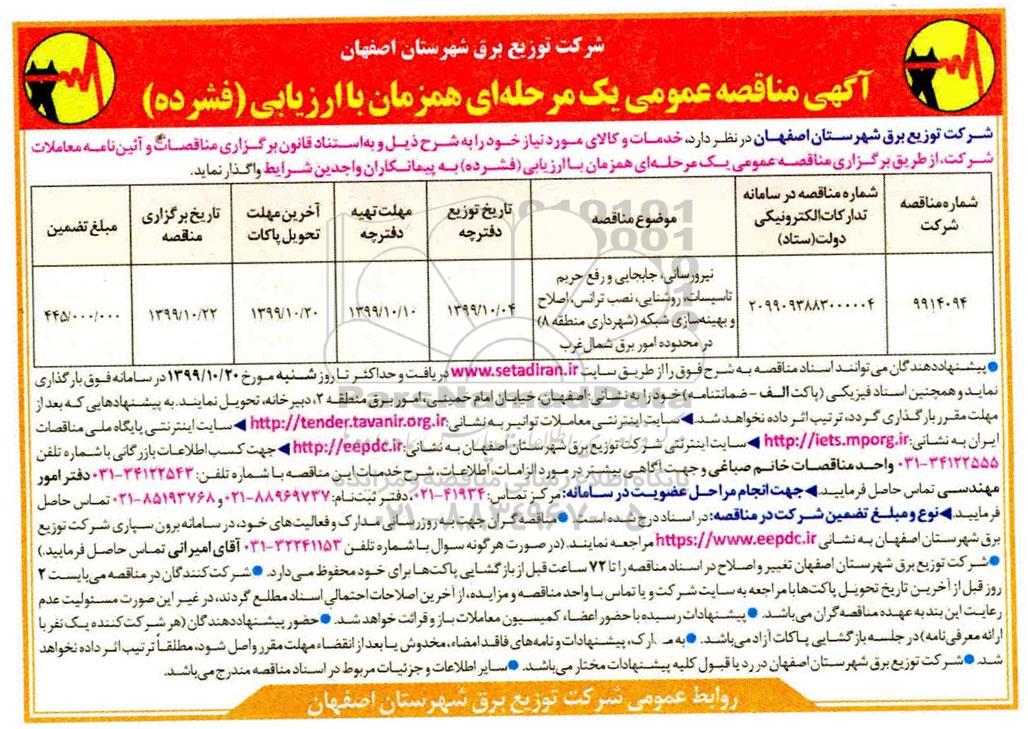 شرکت توزیع برق شهرستان اصفهان
آگهی مناقصه عمومی یک مرحله‌ای همزمان با ارزیابی (فشرده)
شرکت توزیع برق شهرستان اصفهان در نظر دارد، خدمات و کالای مورد نیاز خود را به شرح ذیل و به استناد قانون برگزاری مناقصات و آئین‌نامه معاملات
شرکت، از طریق برگزاری مناقصه عمومی یک مرحله‌ای همزمان با ارزیابی (فشرده) به پیمانکاران واجدین شرایط واگذار نماید.
شماره مناقصه شرکت
شماره مناقصه در سامانه تدارکات الکترونیکی دولت (ستاد)
موضوع مناقصه
تاریخ توزیع دفترچه
مهلت تهیه دفترچه
آخرین مهلت تحویل پاکات
تاریخ برگزاری مناقصه
مبلغ تضمین
۹۹۱۴۰۹۴
۲۰۹۹۰۹۳۸۸۳۰۰۰۰۰۴
نیرورسانی، جابجایی و رفع حریم
تاسیسات، روشنایی، نصب ترانس، اصلاح
و بهینه‌سازی شبکه (شهرداری منطقه ۸)
در محدوده امور برق شمال‌غرب
۱۳۹۹/۱۰/۰۴
۱۳۹۹/۱۰/۱۰
۱۳۹۹/۱۰/۲۰
۱۳۹۹/۱۰/۲۲
۴۴۵/۰۰۰/۰۰۰
● پیشنهاددهندگان می‌توانند اسناد مناقصه به شرح فوق را از طریق سایت www.setadiran.ir دریافت و حداکثر تا روز شنبه مورخ ۱۳۹۹/۱۰/۲۰ در سامانه فوق بارگذاری
نماید و همچنین اسناد فیزیکی (پاکت الف - ضمانتنامه) خود را به نشانی اصفهان، خیابان امام خمینی، امور برق منطقه ۲، دبیرخانه، تحویل نمایند. به پیشنهادهایی که بعد از
مهلت مقرر بارگذاری گردد، ترتیب اثر داده نخواهد شد. ◀ سایت اینترنتی معاملات توانیر به نشانی: http://tender.tavanir.org.ir ◀ سایت اینترنتی پایگاه ملی مناقصات
ایران به نشانی: http://iets.mporg.ir ◀ سایت اینترنتی شرکت توزیع برق شهرستان اصفهان به نشانی: http://eepdc.ir ◀ جهت کسب اطلاعات بازرگانی با شماره تلفن
۰۳۱-۳۴۱۲۲۵۵۵ واحد مناقصات خانم صباغی و جهت آگاهی بیشتر در مورد الزامات، اطلاعات، شرح خدمات این مناقصه با شماره تلفن: ۰۳۱-۳۴۱۲۲۵۴۳ دفتر امور
مهندسی تماس حاصل فرمایید. ◀ جهت انجام مراحل عضویت در سامانه: مرکز تماس: ۰۲۱-۴۱۹۳۴، دفتر ثبت‌نام: ۰۲۱-۸۸۹۶۹۷۳۷ و ۰۲۱-۸۵۱۹۳۷۶۸ تماس حاصل
فرمایید. ◀ نوع و مبلغ تضمین شرکت در مناقصه: در اسناد درج شده است. ● مناقصه گران جهت به روزرسانی مدارک و فعالیت‌های خود، در سامانه برون سپاری شرکت توزیع
برق شهرستان اصفهان به نشانی https://www.eepdc.ir مراجعه نمایند. (در صورت هرگونه سوال با شماره تلفن ۰۳۱-۳۲۲۴۱۱۵۳ آقای امیرانی تماس حاصل فرمایید.)
● شرکت توزیع برق شهرستان اصفهان تغییر و اصلاح در اسناد مناقصه را تا ۷۲ ساعت قبل از بازگشایی پاکت‌ها برای خود محفوظ می‌دارد. ● شرکت‌کنندگان در مناقصه می‌بایست ۲
روز قبل از آخرین تاریخ تحویل پاکت‌ها با مراجعه به سایت شرکت و یا تماس با واحد مناقصه و مزایده، از آخرین اصلاحات احتمالی اسناد مطلع گردند، در غیر این صورت مسئولیت عدم
رعایت این بند به عهده مناقصه‌گران می‌باشد. ● پیشنهادات رسیده با حضور اعضاء کمیسیون معاملات باز و قرائت خواهد شد. ● حضور پیشنهاددهندگان (هر شرکت کننده یک نفر با
ارائه معرفی‌نامه) در جلسه بازگشایی پاکات آزاد می‌باشد. ● به مدارک، پیشنهادات و نامه‌های فاقد امضاء، مخدوش یا بعد از انقضاء مهلت مقرر واصل شود، مطلقاً ترتیب اثر داده نخواهد
شد. ● شرکت توزیع برق شهرستان اصفهان در رد یا قبول کلیه پیشنهادات مختار می‌باشد. ● سایر اطلاعات و جزئیات مربوط در اسناد مناقصه مندرج می‌باشد.
روابط عمومی شرکت توزیع برق شهرستان اصفهان